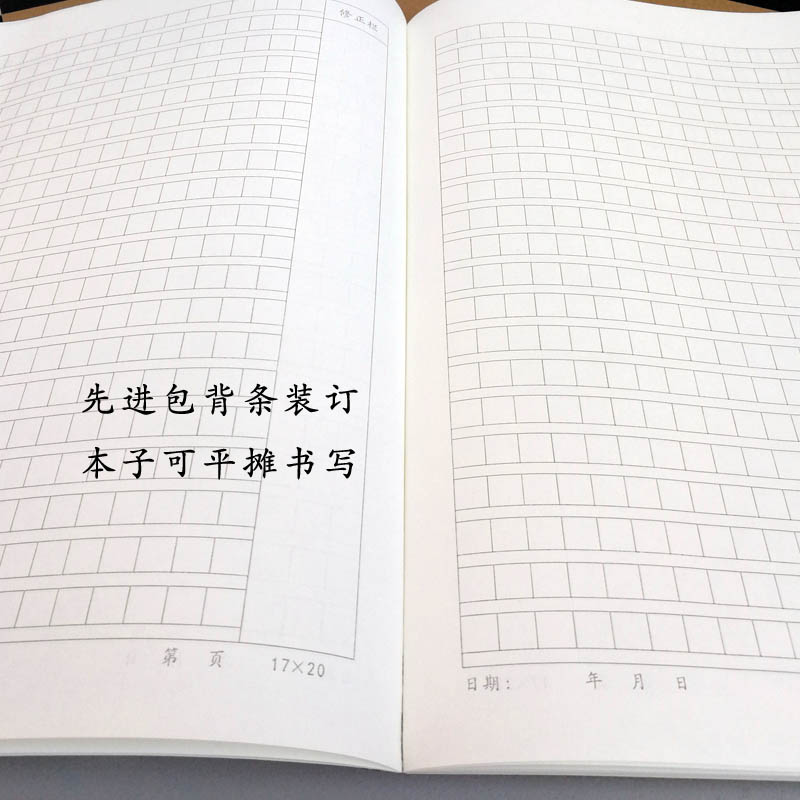 修正栏
先进包背条装订
本子可平摊书写
第 页 17×20
日期： 年 月 日